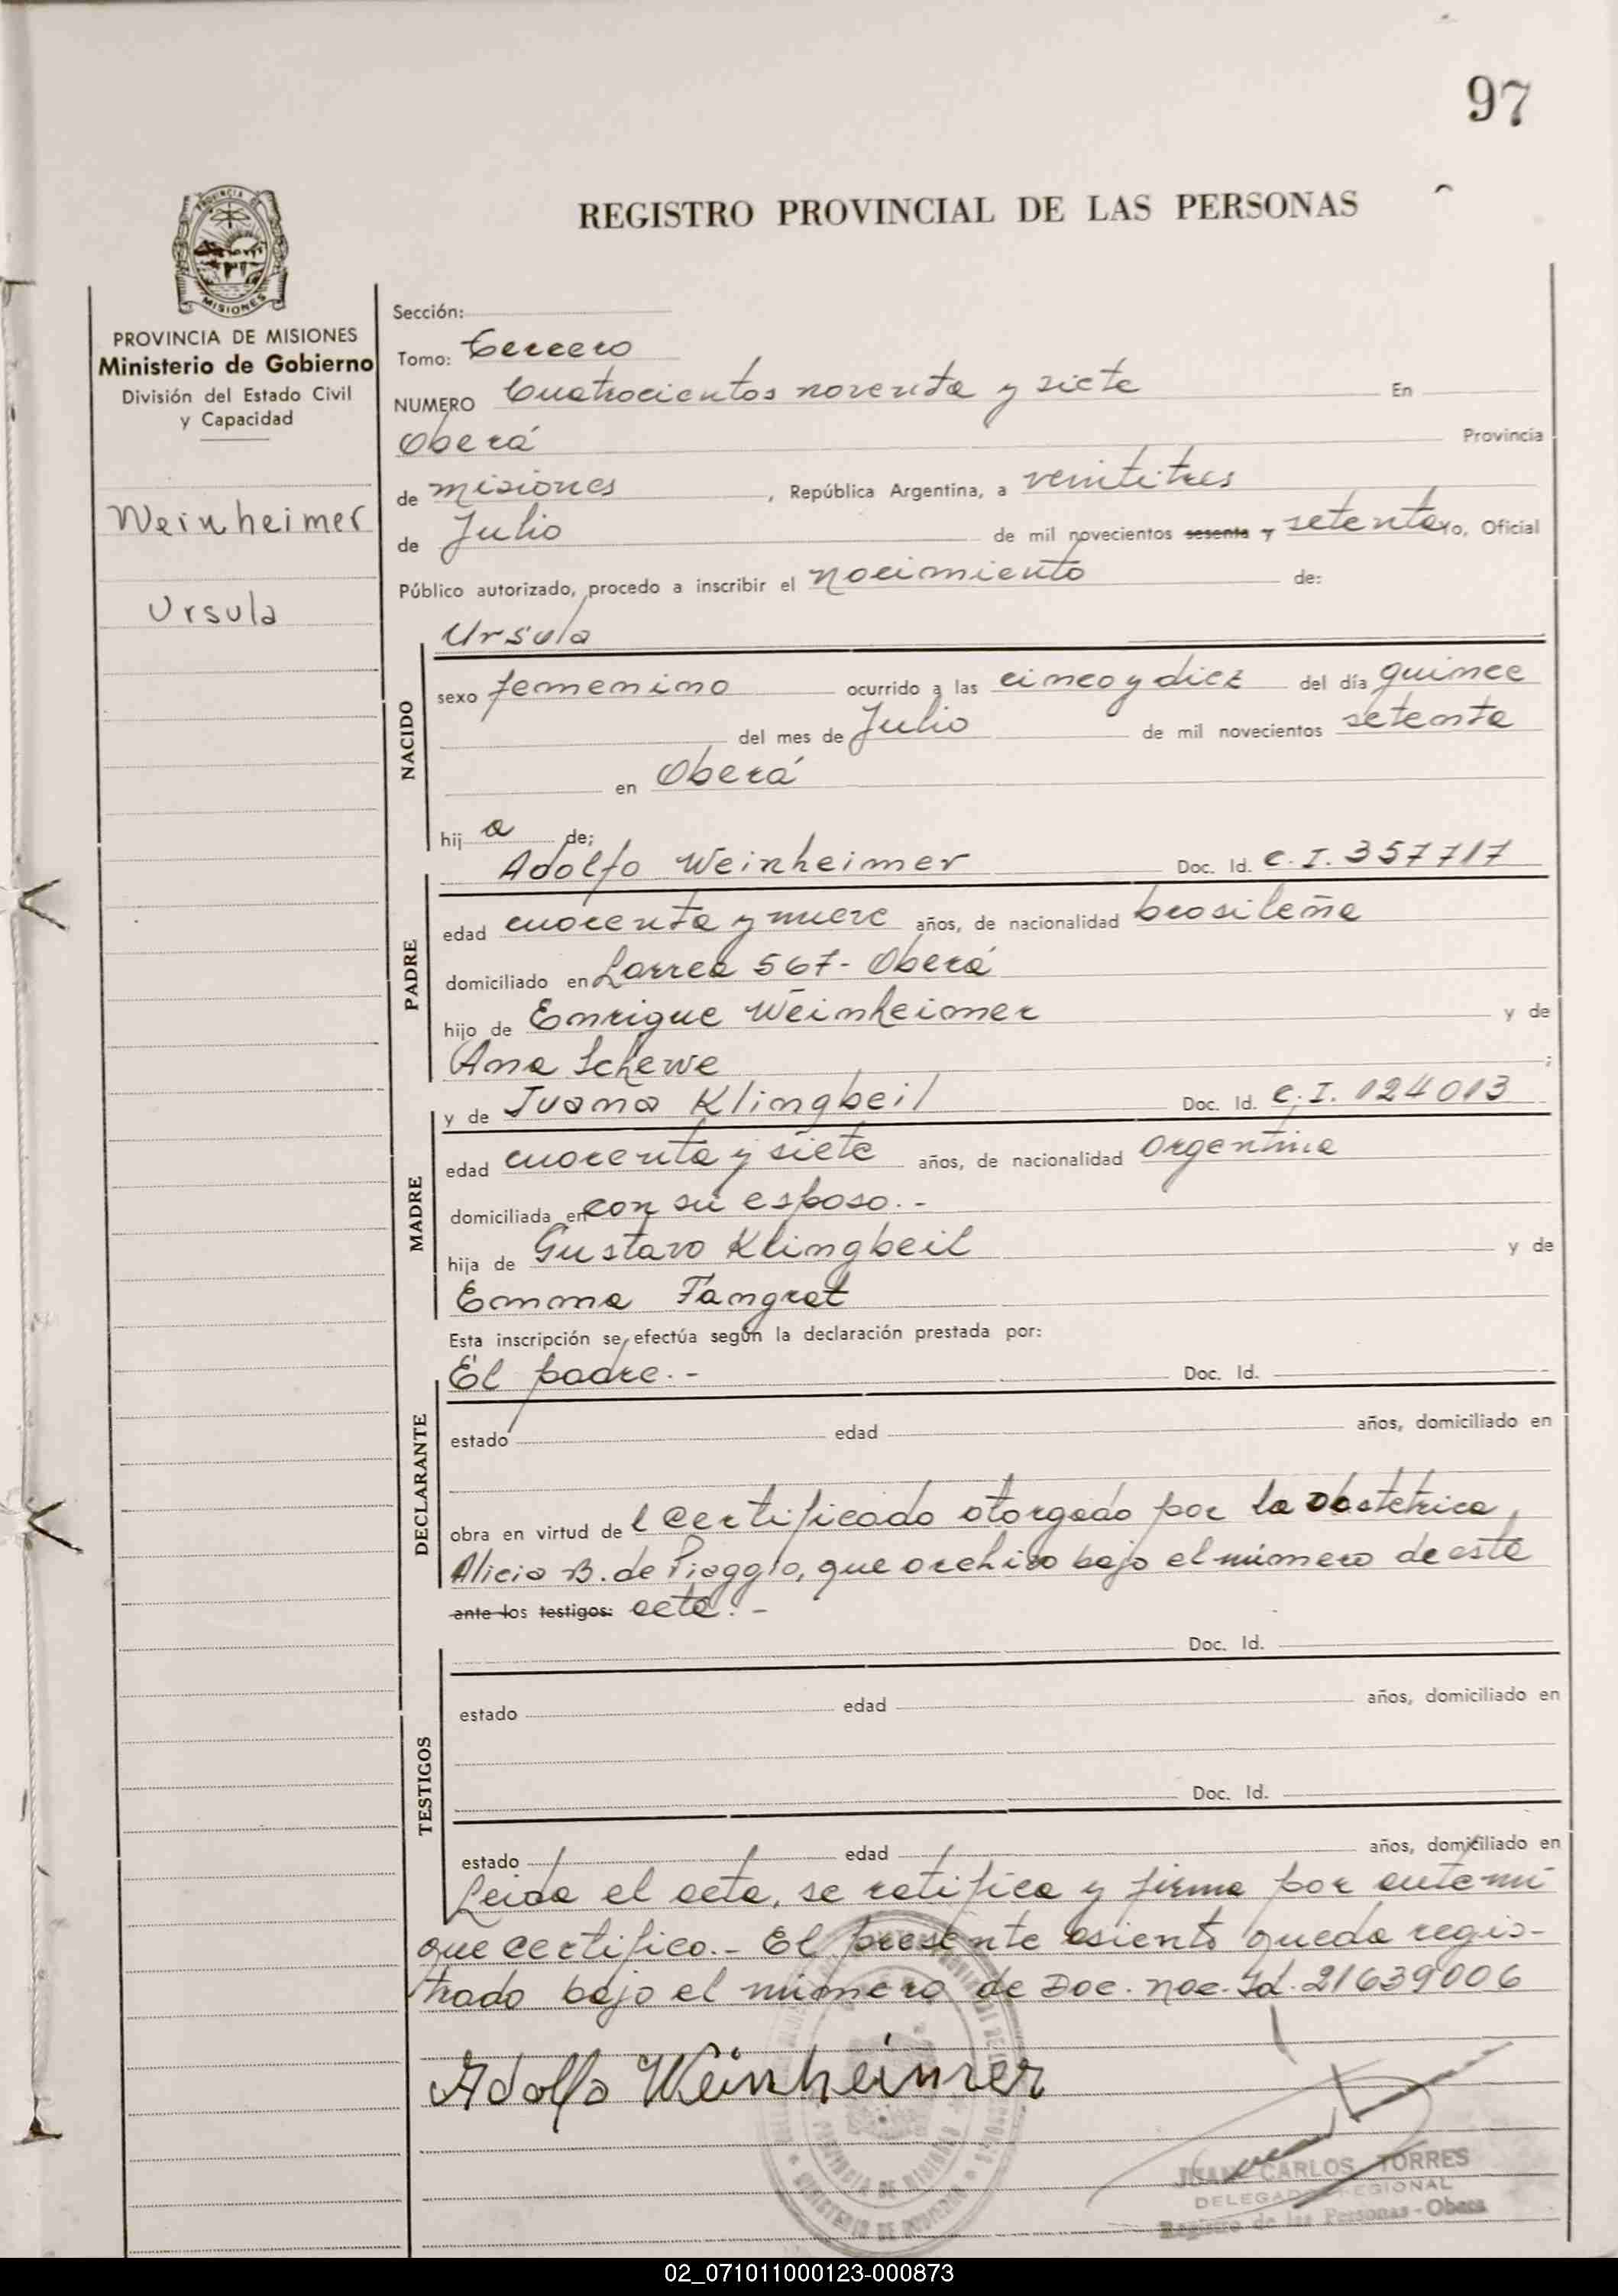 97
REGISTRO PROVINCIAL DE LAS PERSONAS
PROVINCIA DE
MISIONES
PROVINCIA DE MISIONES
Ministerio de Gobierno
División del Estado Civil
y Capacidad
Weinheimer
Ursula
Sección:
Tomo: Tercero
NUMERO Cuatrocientos noventa y siete En
Oberá Provincia
de misiones, República Argentina, a veintitres
de Julio de mil novecientos sesenta y setenta yo, Oficial
Público autorizado, procedo a inscribir el nacimiento de:
NACIDO
Ursula
sexo femenino ocurrido a las cinco y diez del día quince
del mes de Julio de mil novecientos setenta
en Oberá
hij a de;
PADRE
Adolfo Weinheimer Doc. Id. C. I. 357717
edad cuarenta y nueve años, de nacionalidad brasileña
domiciliado en Larrea 567- Oberá
hijo de Enrique Weinheimer y de
Ana Schewe ;
MADRE
y de Juana Klingbeil Doc. Id. C. I. 124013
edad cuarenta y siete años, de nacionalidad argentina
domiciliada en con su esposo.-
hija de Gustavo Klingbeil y de
Emma Fangrat
Esta inscripción se efectúa según la declaración prestada por:
DECLARANTE
El padre.- Doc. Id.
estado edad años, domiciliado en
obra en virtud de l certificado otorgado por la obstetrica
Alicia B. de Piaggio, que archivo bajo el número de esta
ante los testigos: acta.-
TESTIGOS
Doc. Id.
estado edad años, domiciliado en
Doc. Id.
estado edad años, domiciliado en
Leida el acta, se ratifica y firma por ante mi
que certifico.- El presente asiento queda regis-
trado bajo el número de Doc. nac. Id. 21639006
Adolfo Weinheimer
JUAN CARLOS TORRES
DELEGADO REGIONAL
Registro de las Personas - Obera
02_071011000123-000873